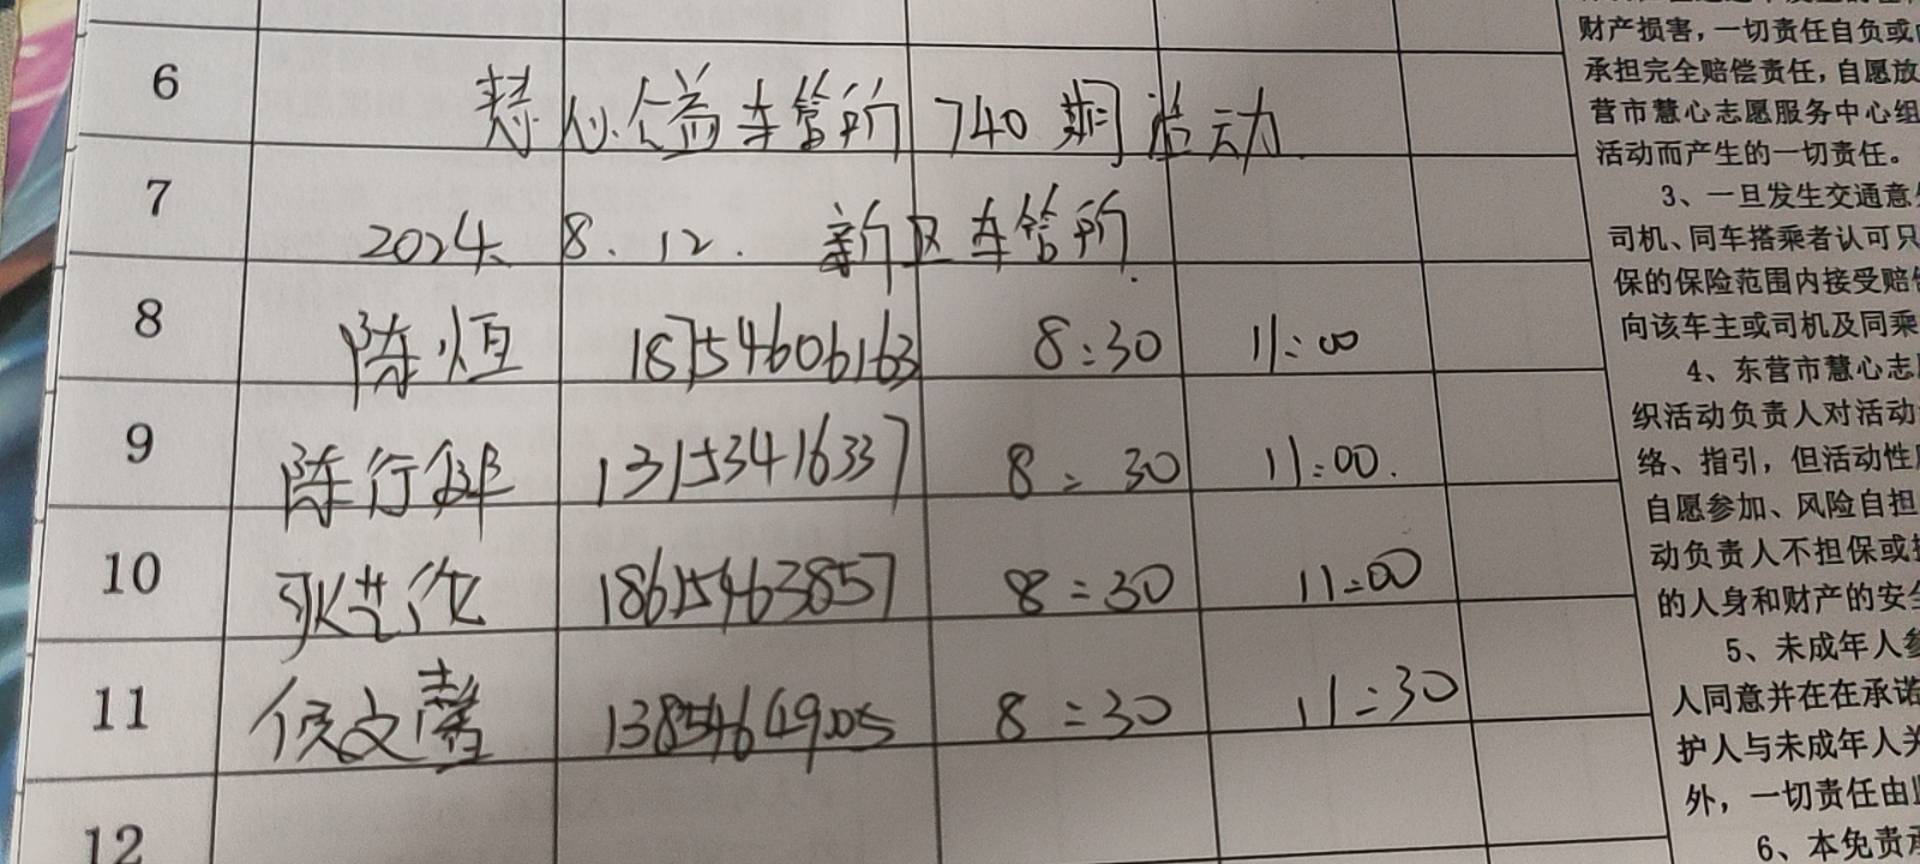 6 慧心公益车管所740期活动
7 2024.8.12. 新区车管所.
8 陈恒 18754606163 8:30 11:00
9 陈行健 13153416337 8:30 11:00.
10 18615463857 8:30 11:00
11 侯文馨 8:30 11:30
12
财产损害，一切责任自负或
承担完全赔偿责任，自愿放
营市慧心志愿服务中心组
活动而产生的一切责任。
3、一旦发生交通意
司机、同车搭乘者认可只
保的保险范围内接受赔
向该车主或司机及同乘
4、东营市慧心志
织活动负责人对活动
络、指引，但活动性
自愿参加、风险自担
动负责人不担保或
的人身和财产的安全
5、未成年人参
人同意并在在承诺
护人与未成年人关
外，一切责任由
6、本免责